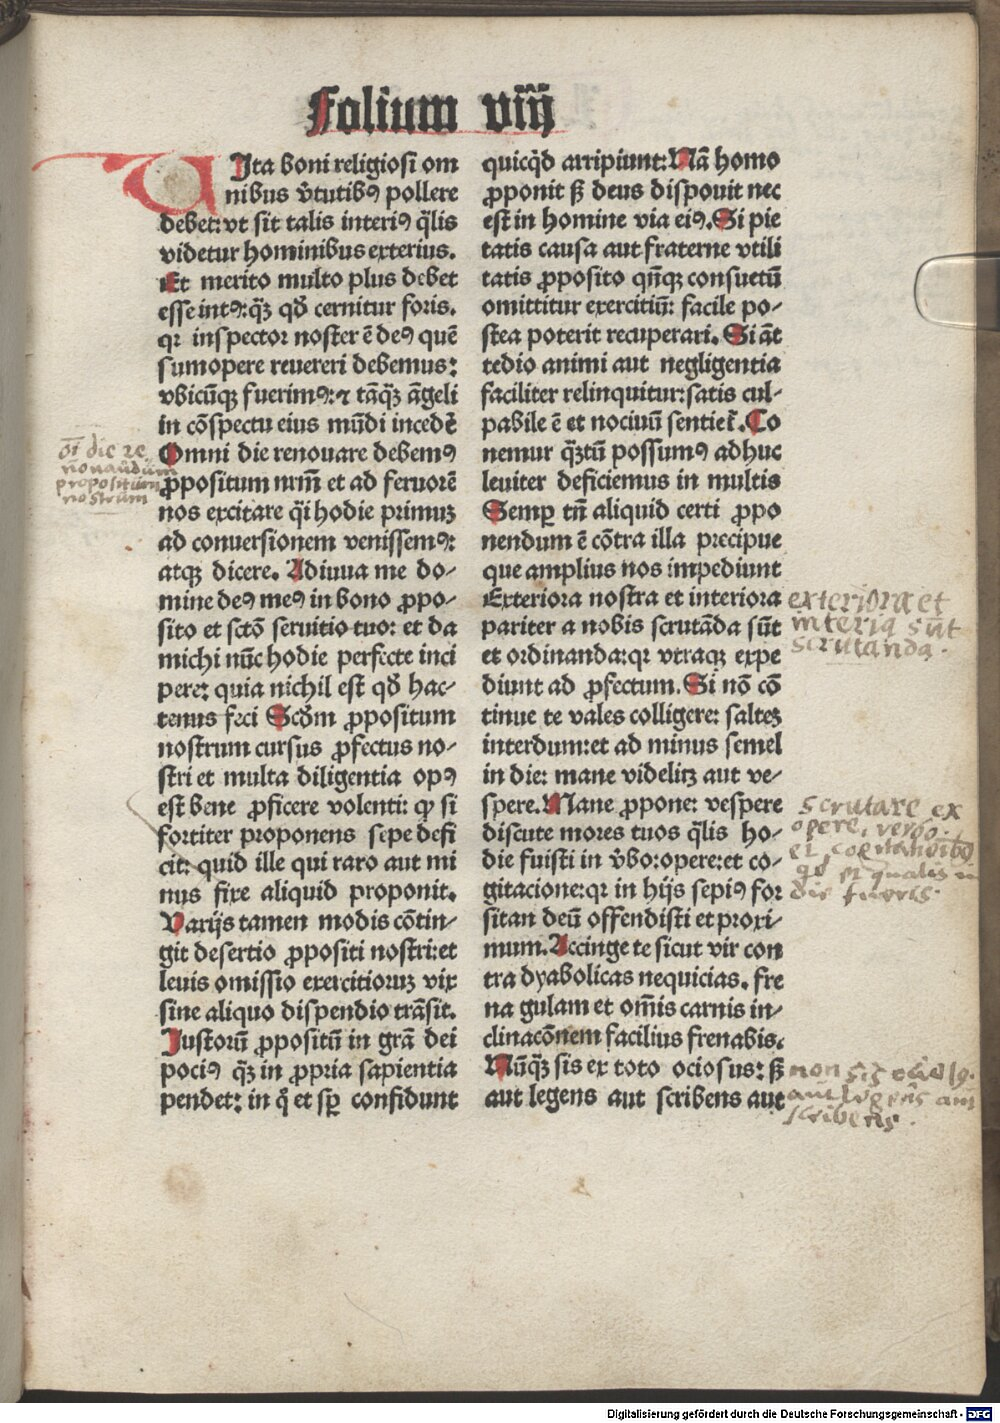 Folium viij
VIta boni religiosi om
nibus v̓tutibꝰ pollere
debet: vt sit talis interiꝰ q̄lis
videtur hominibus exterius.
Et merito multo plus debet
esse intꝰ: qꝫ qd̓ cernitur foris.
qꝛ inspector noster ē deꝰ quē
sumopere reuereri debemus:
vbicūqꝫ fuerimꝰ: ⁊ tāqꝫ āgeli
in cōspectu eius mūdi incedē
Omni die renouare debemꝰ
ꝓpositum nrm̄ et ad feruorē
nos excitare q̄i hodie primuꝫ
ad conuersionem venissemꝰ:
atqꝫ dicere. Adiuua me do-
mine deꝰ meꝰ in bono ꝓpo-
sito et sctō seruitio tuo: et da
michi nūc hodie perfecte inci
pere: quia nichil est qd̓ hac-
tenus feci Scd̓m ꝓpositum
nostrum cursus ꝓfectus no-
stri et multa diligentia opꝰ
est bene ꝓficere volenti: qꝫ si
fortiter proponens sepe defi
cit: quid ille qui raro aut mi
nus fixe aliquid proponit.
Varijs tamen modis cōtin-
git desertio ꝓpositi nostri: et
leuis omissio exercitioruꝫ vix
sine aliquo dispendio trāsit.
Iustorū ꝓpositū in grā dei
pociꝰ qꝫ in ꝓpria sapientia
pendet: in q̊ et sꝑ confidunt
quicq̓d arripiunt: Nā homo
ꝓponit sꝫ deus disponit nec
est in homine via eiꝰ. Si pie
tatis causa aut fraterne vtili
tatis ꝓposito qn̄qꝫ consuetū
omittitur exercitiū: facile po-
stea poterit recuperari. Si āt
tedio animi aut negligentia
faciliter relinquitur: satis cul-
pabile ē et nociuū sentiet̄. Co
nemur qꝫtū possumꝰ adhuc
leuiter deficiemus in multis
Semꝑ tn̄ aliquid certi ꝓpo
nendum ē cōtra illa precipue
que amplius nos impediunt
Exteriora nostra et interiora
pariter a nobis scrutāda sūt
et ordinanda: qꝛ vtraqꝫ expe
diunt ad ꝓfectum. Si nō cō
tinue te vales colligere: salteꝫ
interdum: et ad minus semel
in die: mane videlitꝫ aut ve-
spere. Mane ꝓpone: vespere
discute mores tuos q̄lis ho-
die fuisti in v̓bo: opere: et co-
gitacione: qꝛ in hijs sepiꝰ for
sitan deū offendisti et proxi-
mum. Accinge te sicut vir con
tra dyabolicas nequicias. fre
na gulam et om̄is carnis in-
clinacōnem facilius frenabis.
Nūqꝫ sis ex toto ociosus: sꝫ
aut legens aut scribens aut
oī die re
nouandum
propositum
nostrum
exteriora et
interia sūt
scrutanda.
scrutare ex
opere, verbo.
et cogitationibꝰ
die fueris.
non sis
aut legens aut
scribens.
Digitalisierung gefördert durch die Deutsche Forschungsgemeinschaft - DFG